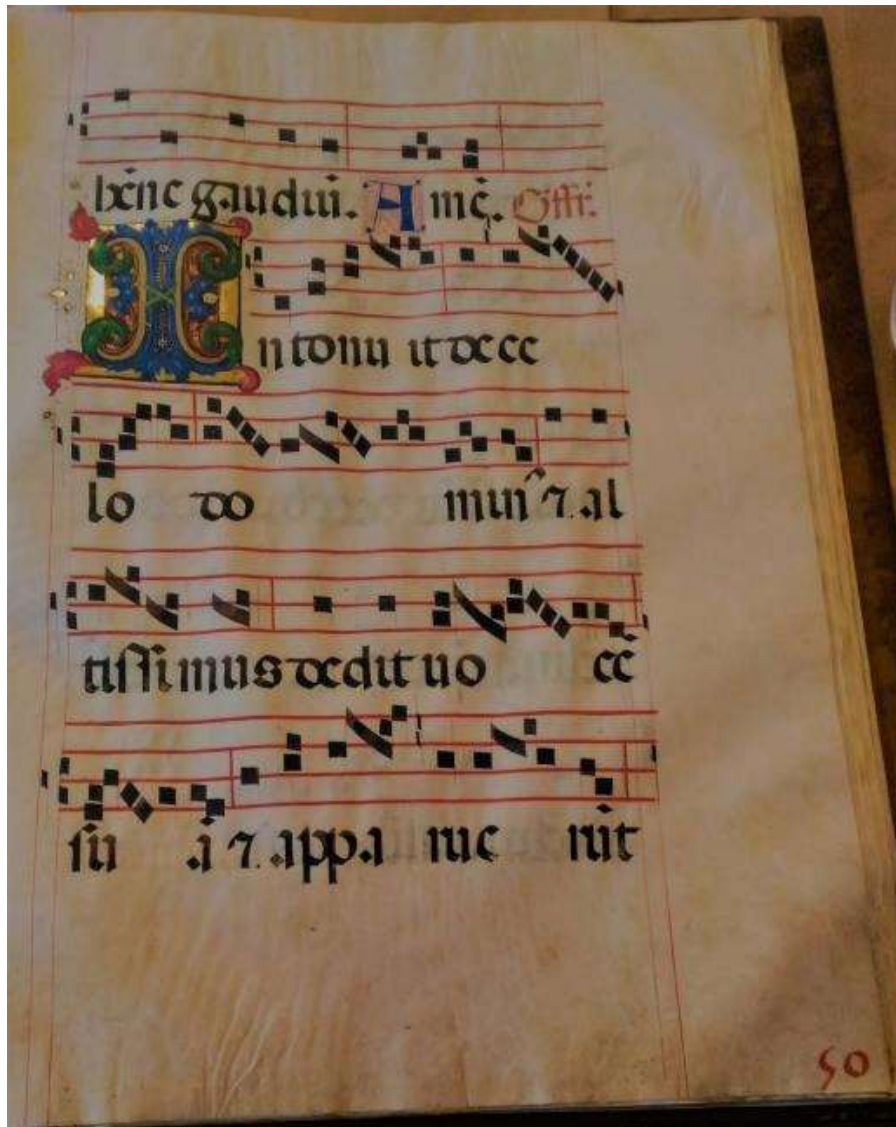 be ñc gaudiū. A mē. Offr̄.
In tonu it de ce
lo do minꝰ ⁊ al
tissimus dedit uo cē
su ā ⁊ appa rue rūt
50